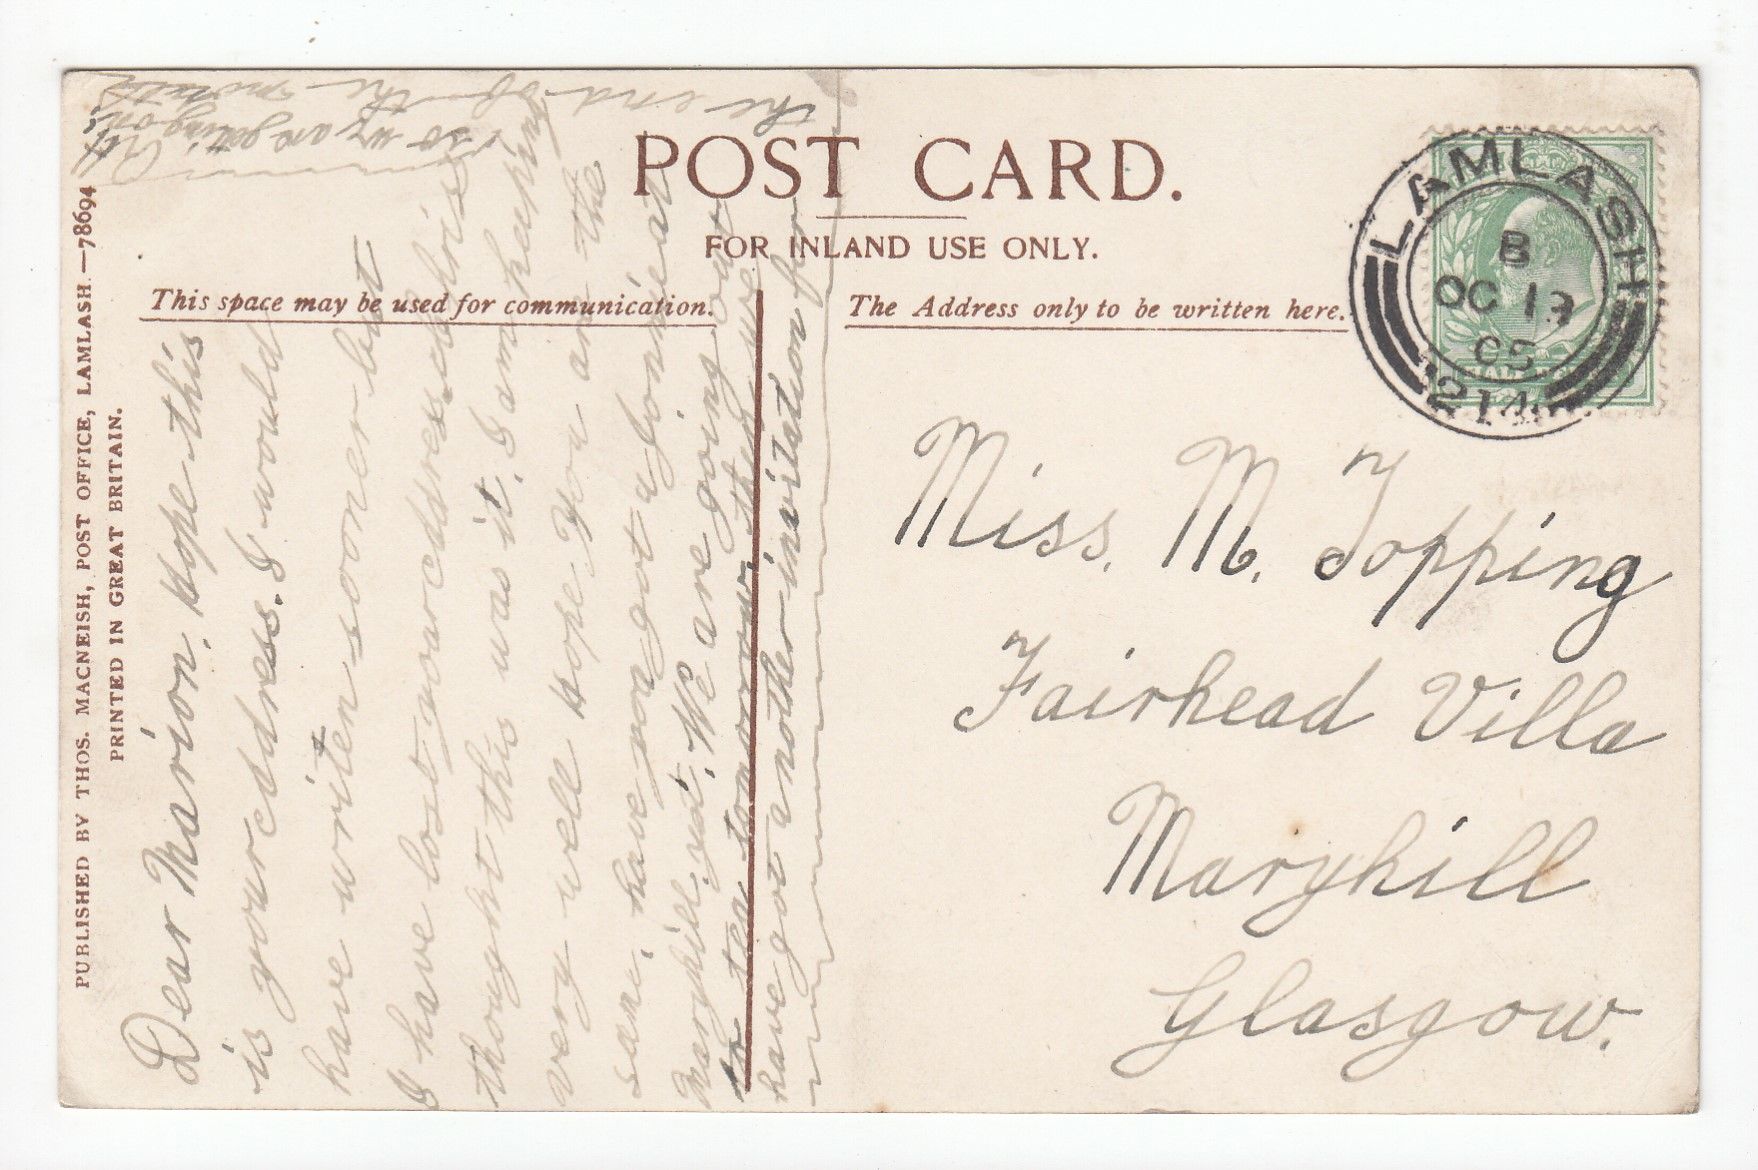 POST CARD.
FOR INLAND USE ONLY.
This space may be used for communication.
The Address only to be written here.
PUBLISHED BY THOS. MACNEISH, POST OFFICE, LAMLASH.—78694
PRINTED IN GREAT BRITAIN.
LAMLASH
B
OC 13
05
214
Dear Marion. Hope this
is your address. I would
have writen sooner but
I have lost your address
thought this was it. I am keeping
very well Hope you are the
same. have you got a
Maryhill yet. We are going out
to tea tomorrow. then we
have got another invitation for
the end of the month
so we are geting on.
Miss. M. Topping
Fairhead Villa
Maryhill
Glasgow.